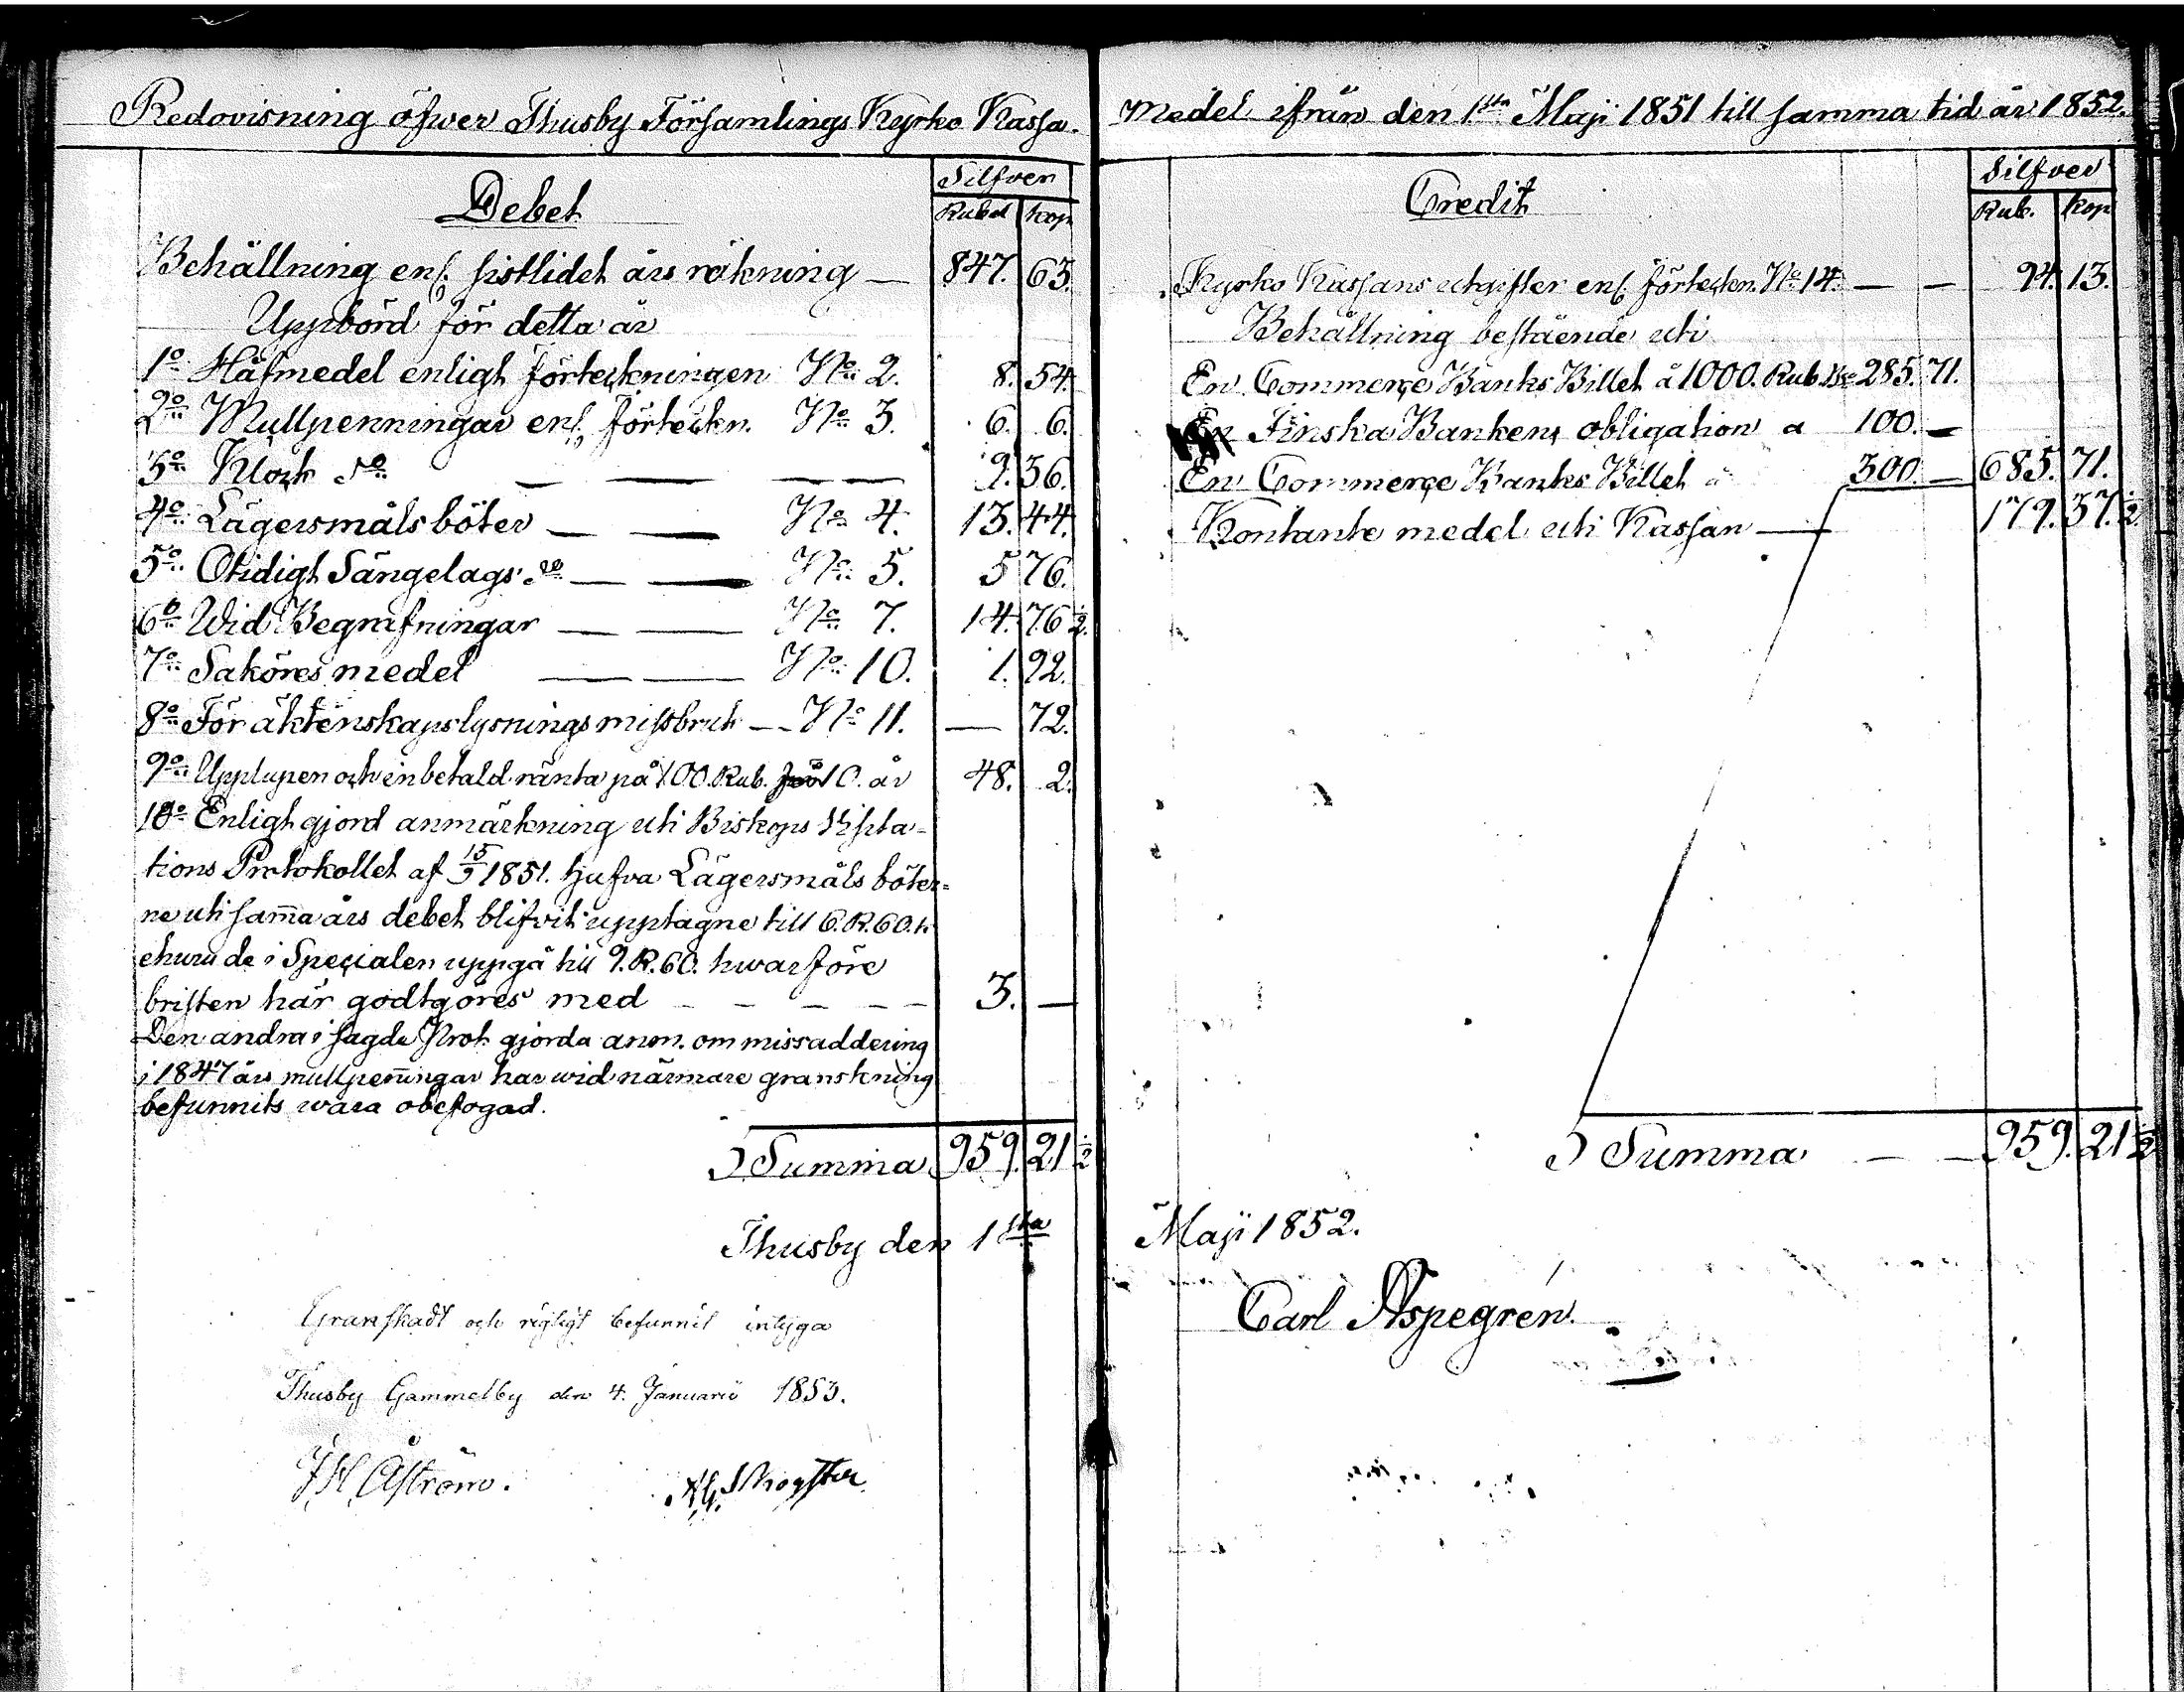 Redovisning öfwer Thusby Församlings Kyrko Kassa.
Debet
Silfver
Rubel Kop
Behållning enl. sistlidet års räkning — 847. 63.
Uppbörd för detta år
1o Håfmedel enligt förteckningen No 2. 8. 54.
2o Mullpenningar enl. förteckn. No 3. 6. 6.
3o Klock do — — — — 9. 36.
4o Lägersmåls böter — — No 4. 13. 44.
5o Otidigt Sängelags do — — No 5. 5 76.
6o Wid Begrafningar — — No 7. 14. 76 1/2.
7o Saköres medel — — No 10. 1. 92.
8o För äktenskapslysnings missbruk — No 11. — 72.
9o Upplupen och inbetald ränta på 100. Rub. för 10. år 48. 2.
10o Enligt gjord anmärkning uti Biskops Visita-
tions Protokollet af 15/ 1851. hafva Lägersmåls böter-
ne uti samma års debet blifvit upptagne till 6. R. 60. k.
ehuru de i Specialen uppgå till 9. R. 60. hwarföre
bristen här godtgöres med — — — — — 3. —
Den andra i sagde Prot. gjorda anm. om missaddering
i 1847 års mullpenningar har wid närmare granskning
befunnits wara obefogad.
Summa 959. 21 1/2
Thusby den 1sta
Granskadt och rigtigt befunnit intyga
Thusby Gammelby den 4. Januarii 1853.
J H Åström.
medel ifrån den 1sta Maji 1851 till samma tid år 1852.
Credit
Silfver
Rub. Kop
Kyrko Kassans utgifter enl. förteckn. No 14. — — 94. 13.
Behållning bestående uti
En Commerçe Banks Billet å 1000. Rub. Bco 285. 71.
En Finska Bankens obligation a 100. —
En Commerçe Banks Billet å 300 — 685. 71.
Kontante medel uti Kassan — 179. 37. 1/2
Summa — — 959. 21 1/2
Maji 1852.
Carl Aspegren.